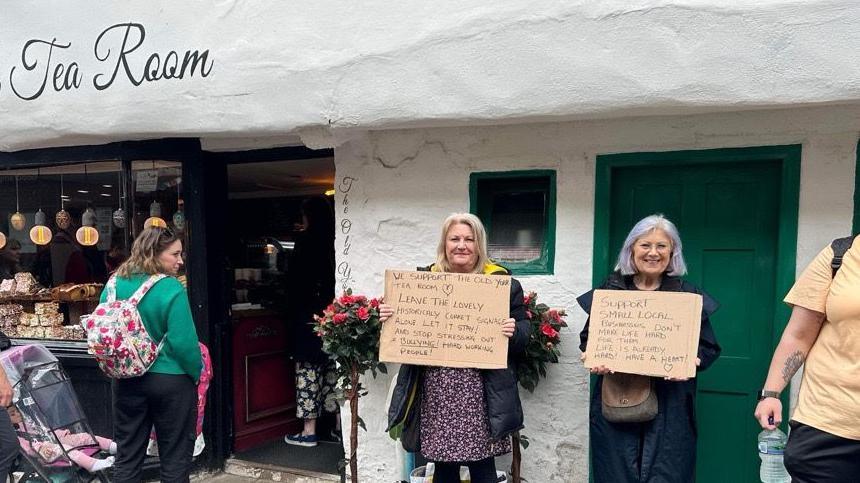 Tea Room
The Old Yo
WE SUPPORT THE OLD YORK
TEA ROOM ♡
LEAVE THE LOVELY
HISTORICALLY CORRECT SIGNAGE
ALONE LET IT STAY!
AND STOP STRESSING OUT
& BULLYING! HARD WORKING
PEOPLE!
SUPPORT
SMALL LOCAL
BUSINESSES DON'T
MAKE LIFE HARD
FOR THEM
LIFE IS ALREADY
HARD! HAVE A HEART!
♡